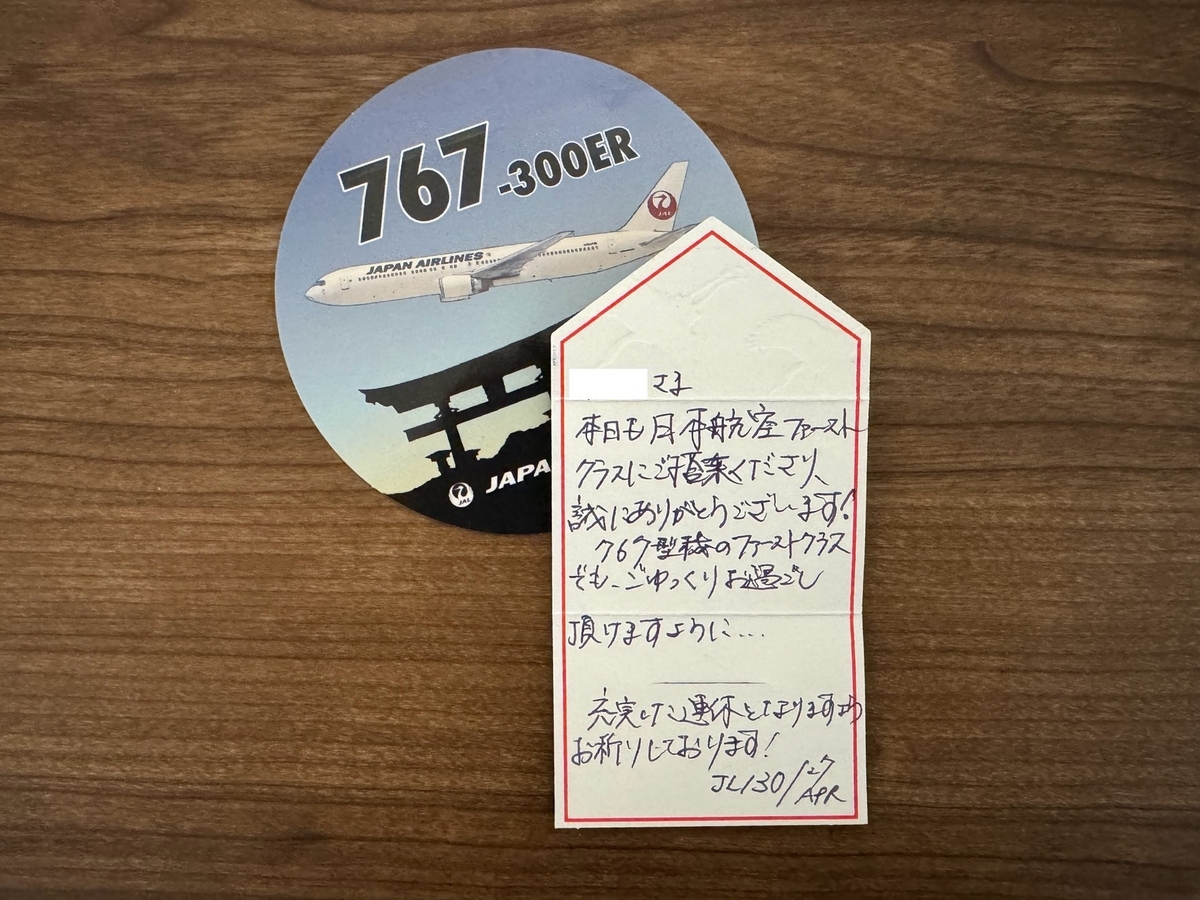 767-300ER
JAPAN AIRLINES
JAL
JAL
JAPA
さま
本日も日本航空ファースト
クラスにご搭乗くださり、
誠にありがとうございます!
767型機のファーストクラス
でも、ごゆっくりお過ごし
頂けますように…
充実した連休となりますよう
お祈りしております!
JL130/27
APR